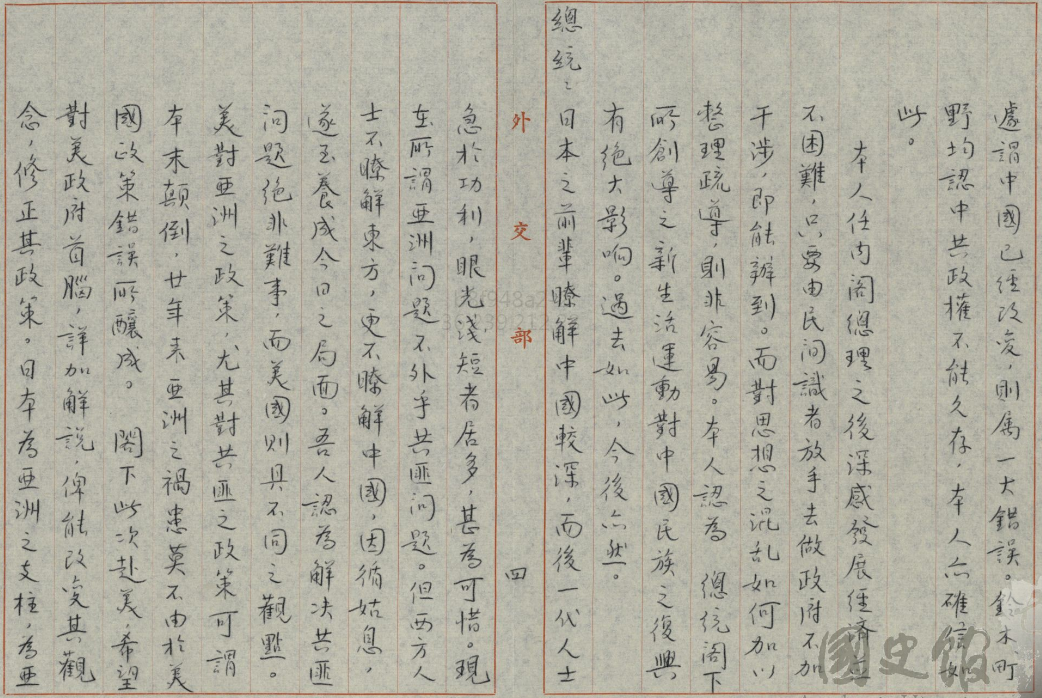 遽謂中國已經改变，則屬一大錯誤。鈴木町
野均認中共政權不能久存，本人亦確信如
此。
本人任內閣總理之後深感發展經濟並
不困難，只要由民间識者放手去做政府不加
干涉，即能辦到。而對思想之混乱如何加以
整理疏導，則非容易。本人認為　總统閣下
所創導之新生活運動對中國民族之復興
有绝大影响。過去如此，今後亦然。
總統：日本之前輩瞭解中國較深，而後一代人士
外交部
四
急於功利，眼光淺短者居多，甚為可惜。現
在所謂亞洲问題不外乎共匪问題。但西方人
士不瞭解東方，更不瞭解中國，因循姑息，
遂至養成今日之局面。吾人認為解决共匪
问題绝非難事，而美國則具不同之觀點。
美對亞洲之政策，尤其對共匪之政策可謂
本末顛倒，廿年来亞洲之禍患莫不由於美
國政策錯誤所釀成。　閣下此次赴美，希望
對美政府首腦，詳加解說，俾能改变其觀
念，修正其政策。日本為亞洲之支柱，為亞
國史館